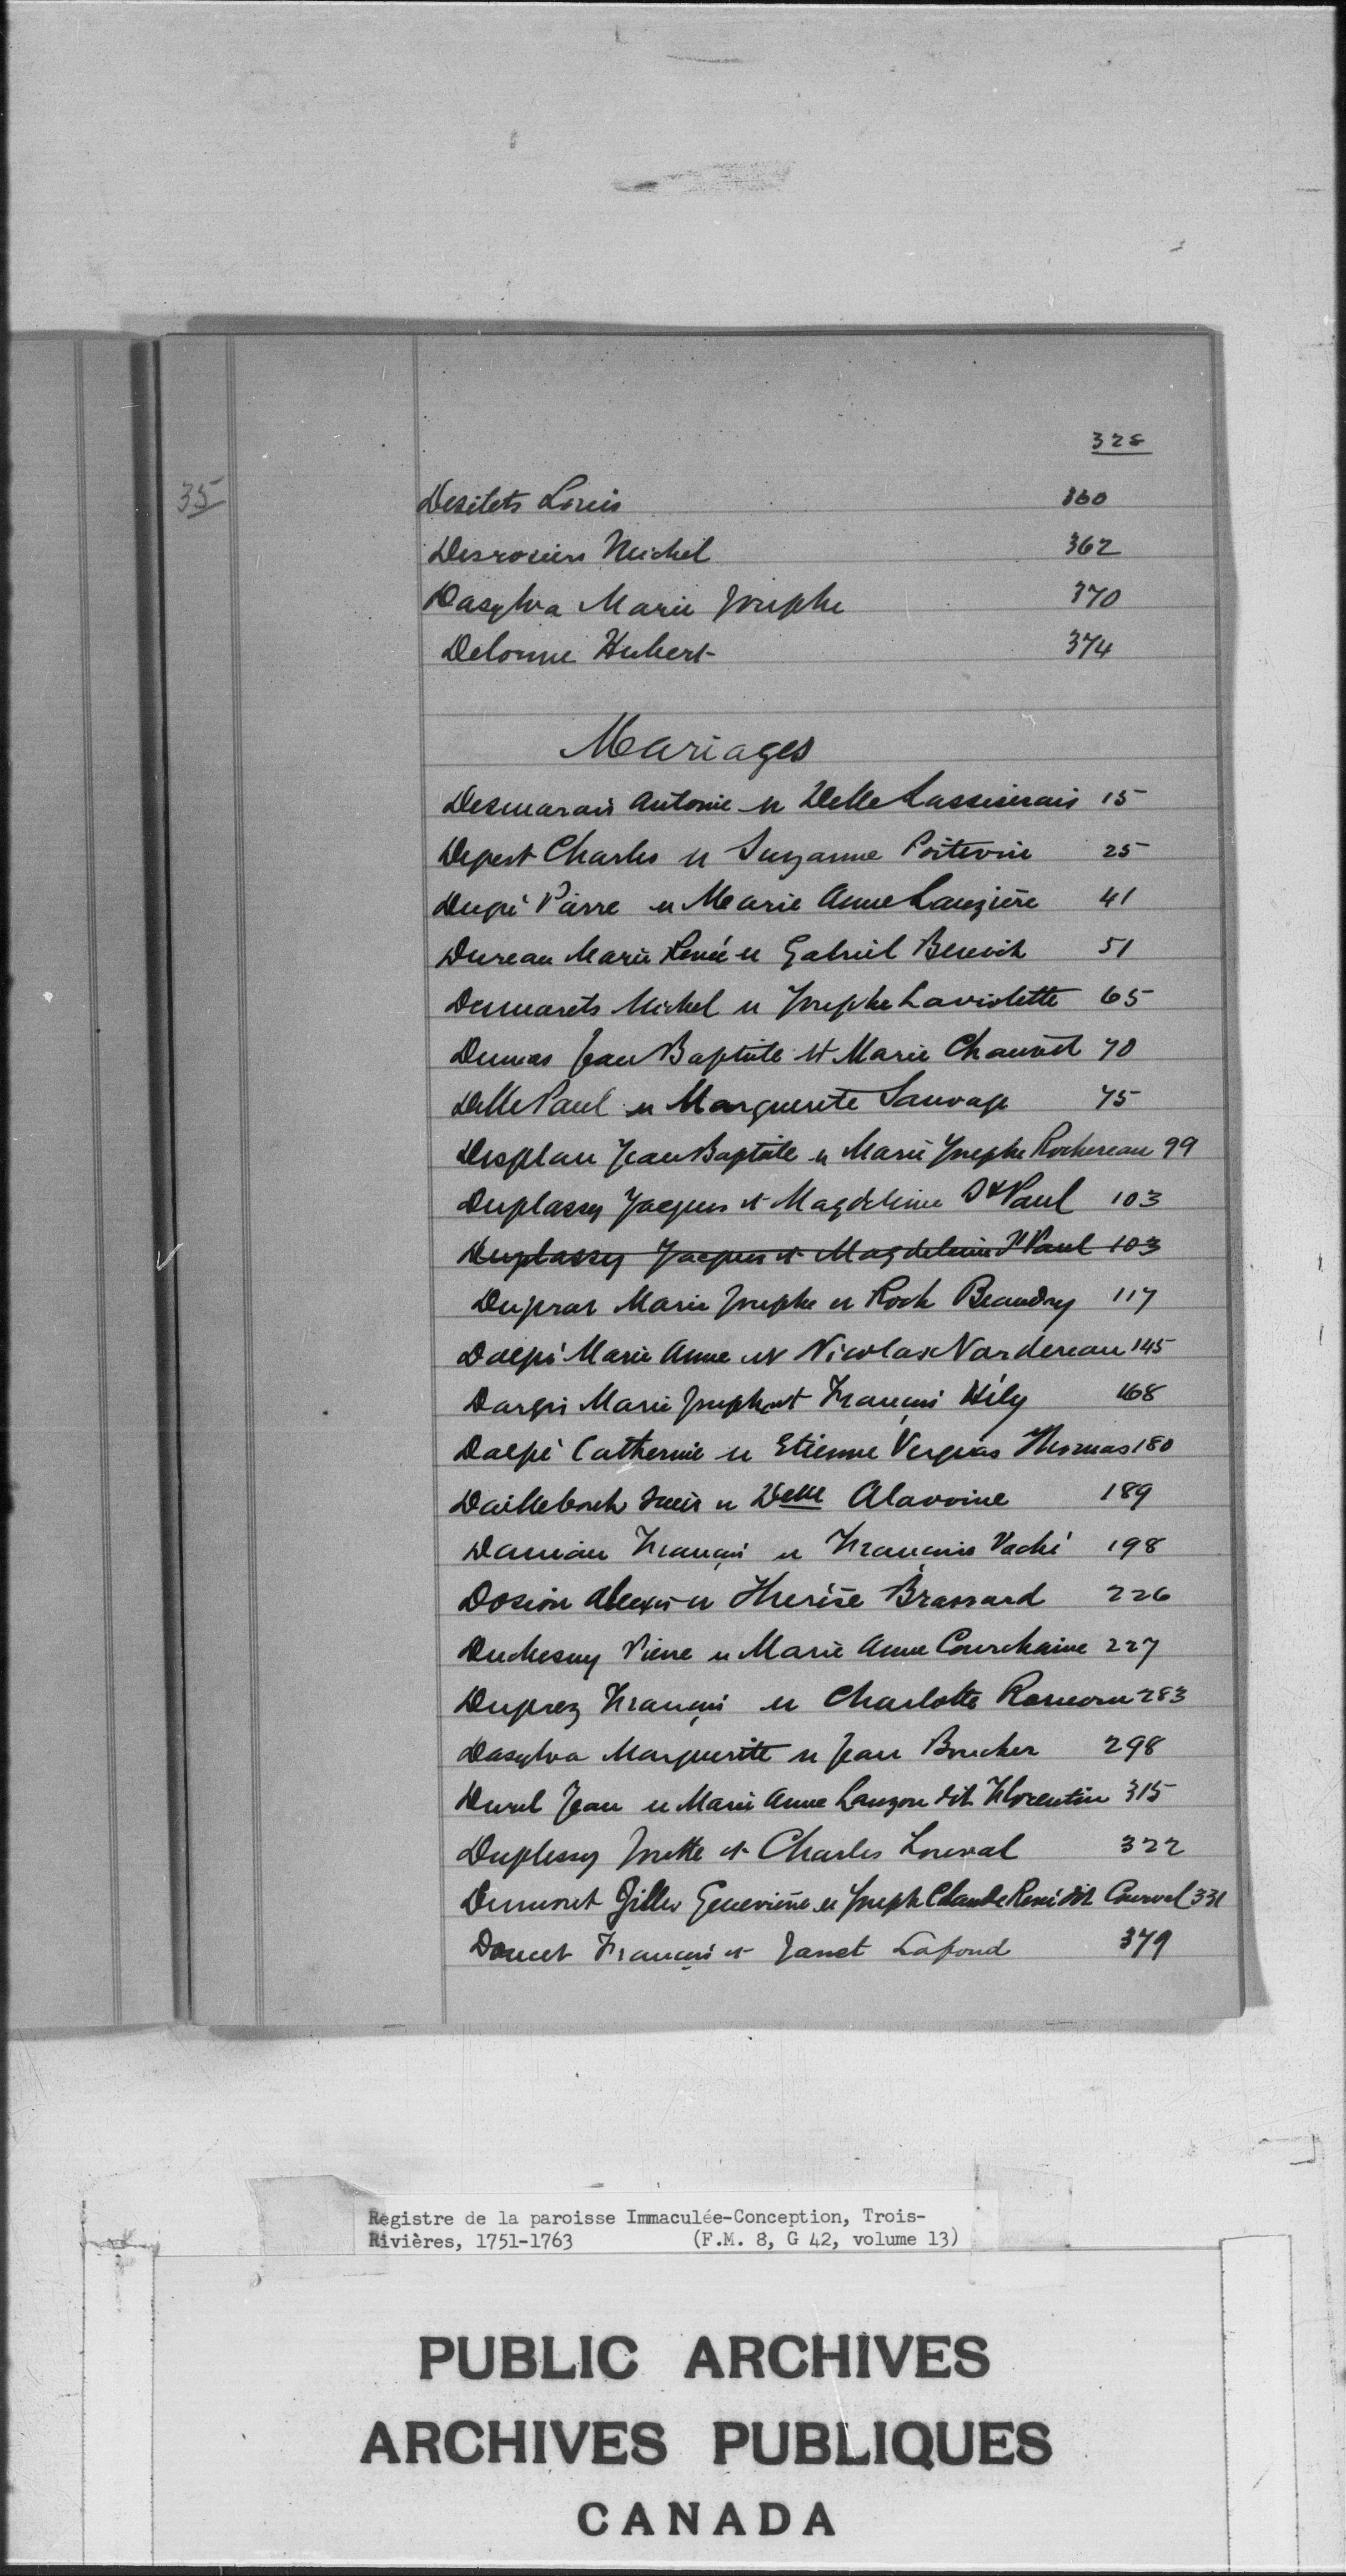 328
35
Desilets Louis 360
Desrosiers Michel 362
Dasylva Marie Josephe 370
Delorme Hubert 374
Mariages
Desmarais Antonie et Delle Lassiserais 15
Depest Charles et Suzanne Poitevin 25
Dupé Pierre et Marie Anne Lauzière 41
Dureau Marie Renée et Gabriel Benoit 51
Desmarets Michel et Josephe Laviolette 65
Dumas Jean Baptiste et Marie Chauvet 70
Delle Paul et Marguerite Sauvage 75
Desplau Jean Baptiste et Marie Josephe Rochereau 99
Duplassy Jacques et Magdeleine St Paul 103
Duplassy Jacques et Magdeleine St Paul 103
Duprat Marie Josephe et Rock Beaudry 117
Dalpé Marie Anne et Nicolas Nardereau 145
Dargis Marie Joseph et François Hély 168
Dalpé Catherine et Etienne Vergeas Thomas 180
Daillebout Louis et Delle Alavoine 189
Damian François et François Vaché 198
Dosion Alexis et Therèse Brassard 226
Duchesny Pierre et Marie Anne Courchaine 227
Duprez François et Charlotte 283
Dasylva Marguerite et Jean Boucher 298
Durel Jean et Marie Anne Lauzon dit Florentin 315
Duplessy Josette et Charles Lorval 322
Dumont Gilles Geneviève et Joseph Claude René dit Courval 331
Doucet François et Janet Lafond 379
Registre de la paroisse Immaculée-Conception, Trois-
Rivières, 1751-1763 (F.M. 8, G 42, volume 13)
PUBLIC ARCHIVES
ARCHIVES PUBLIQUES
CANADA